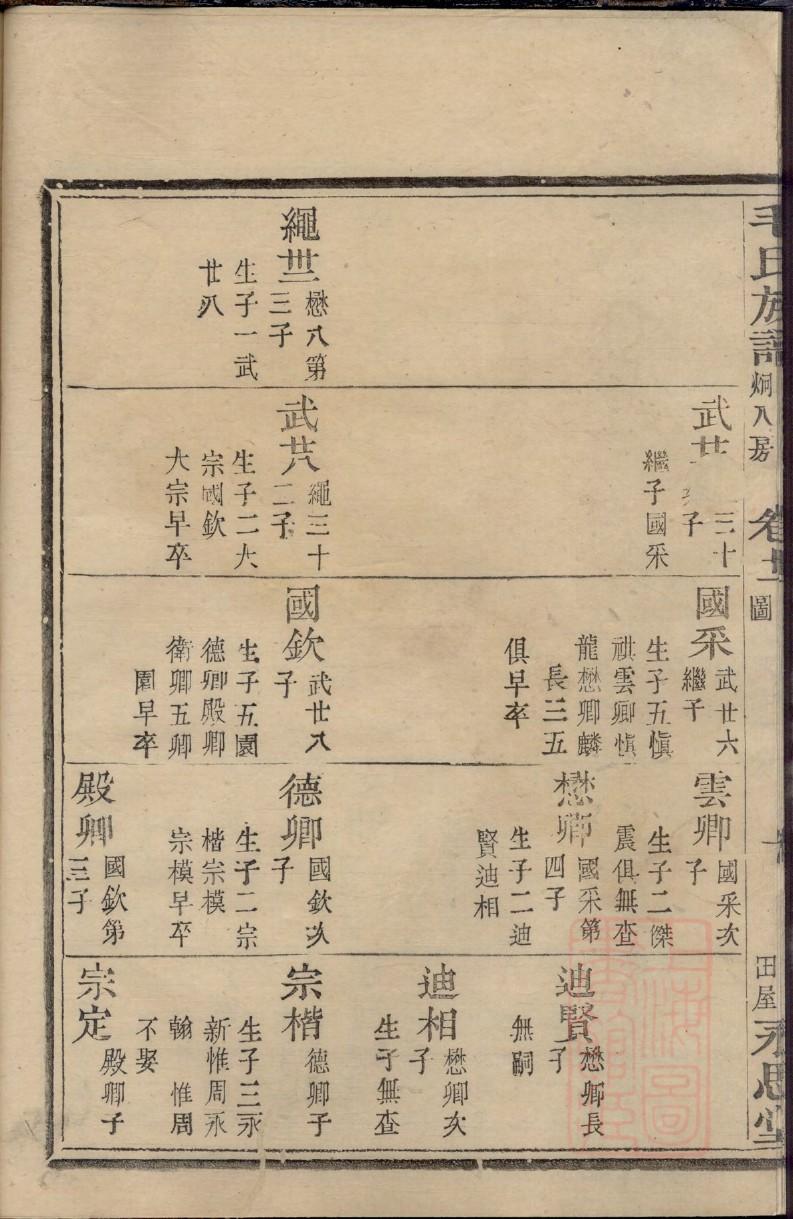 毛氏族譜 炯八房 卷廿 圖 田屋 永思堂
繩卅
懋八第
三子
生子一武
廿八
武廿
三十
子
繼子國采
武廿八
繩三十
二子
生子二大
宗國欽
大宗早卒
國采
武廿六
繼子
生子五愼
祺雲卿愼
龍懋卿麟
長三五
俱早卒
國欽
武廿八
子
生子五園
德卿殿卿
衛卿五卿
園早卒
雲卿
國采次
子
生子二傑
震俱無查
懋卿
國采第
四子
生子二迪
賢迪相
德卿
國欽次
子
生子二宗
楷宗模
宗模早卒
殿卿
國欽第
三子
迪賢
懋卿長
子
無嗣
迪相
懋卿次
子
生子無查
宗楷
德卿子
生子三永
新惟周永
翰 惟周
不娶
宗定
殿卿子